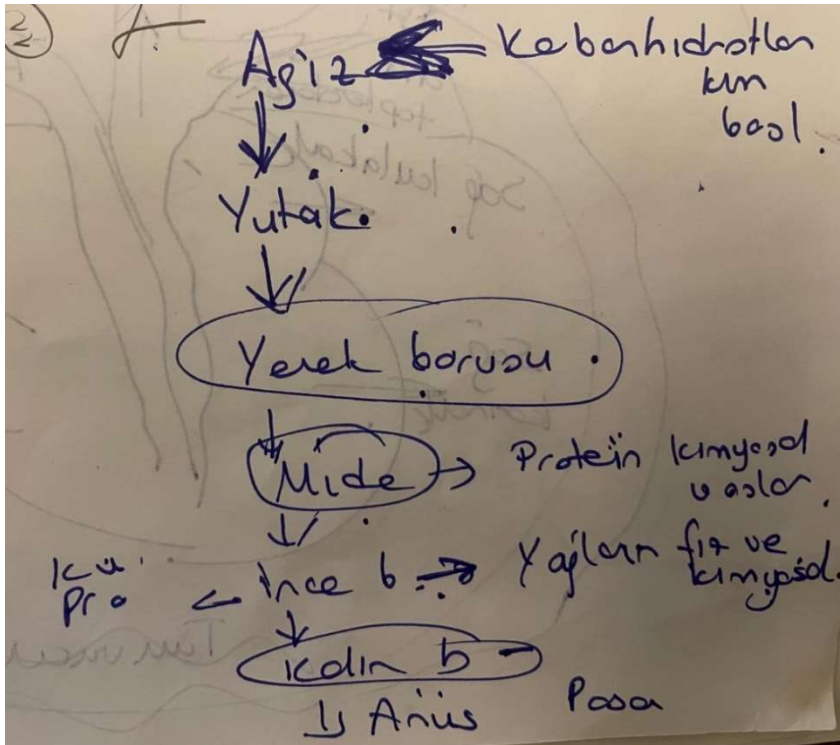 2
Ağız ← Kabonhidratlar
kım
başl.
↓
Yutak
↓
Yemek borusu
↓
Mide → Protein kımyasal
başlar
↓
Pro ← İnce b → Yağların fiz ve
kımyasal.
↓
Kalın b -
↳ Anüs Posa